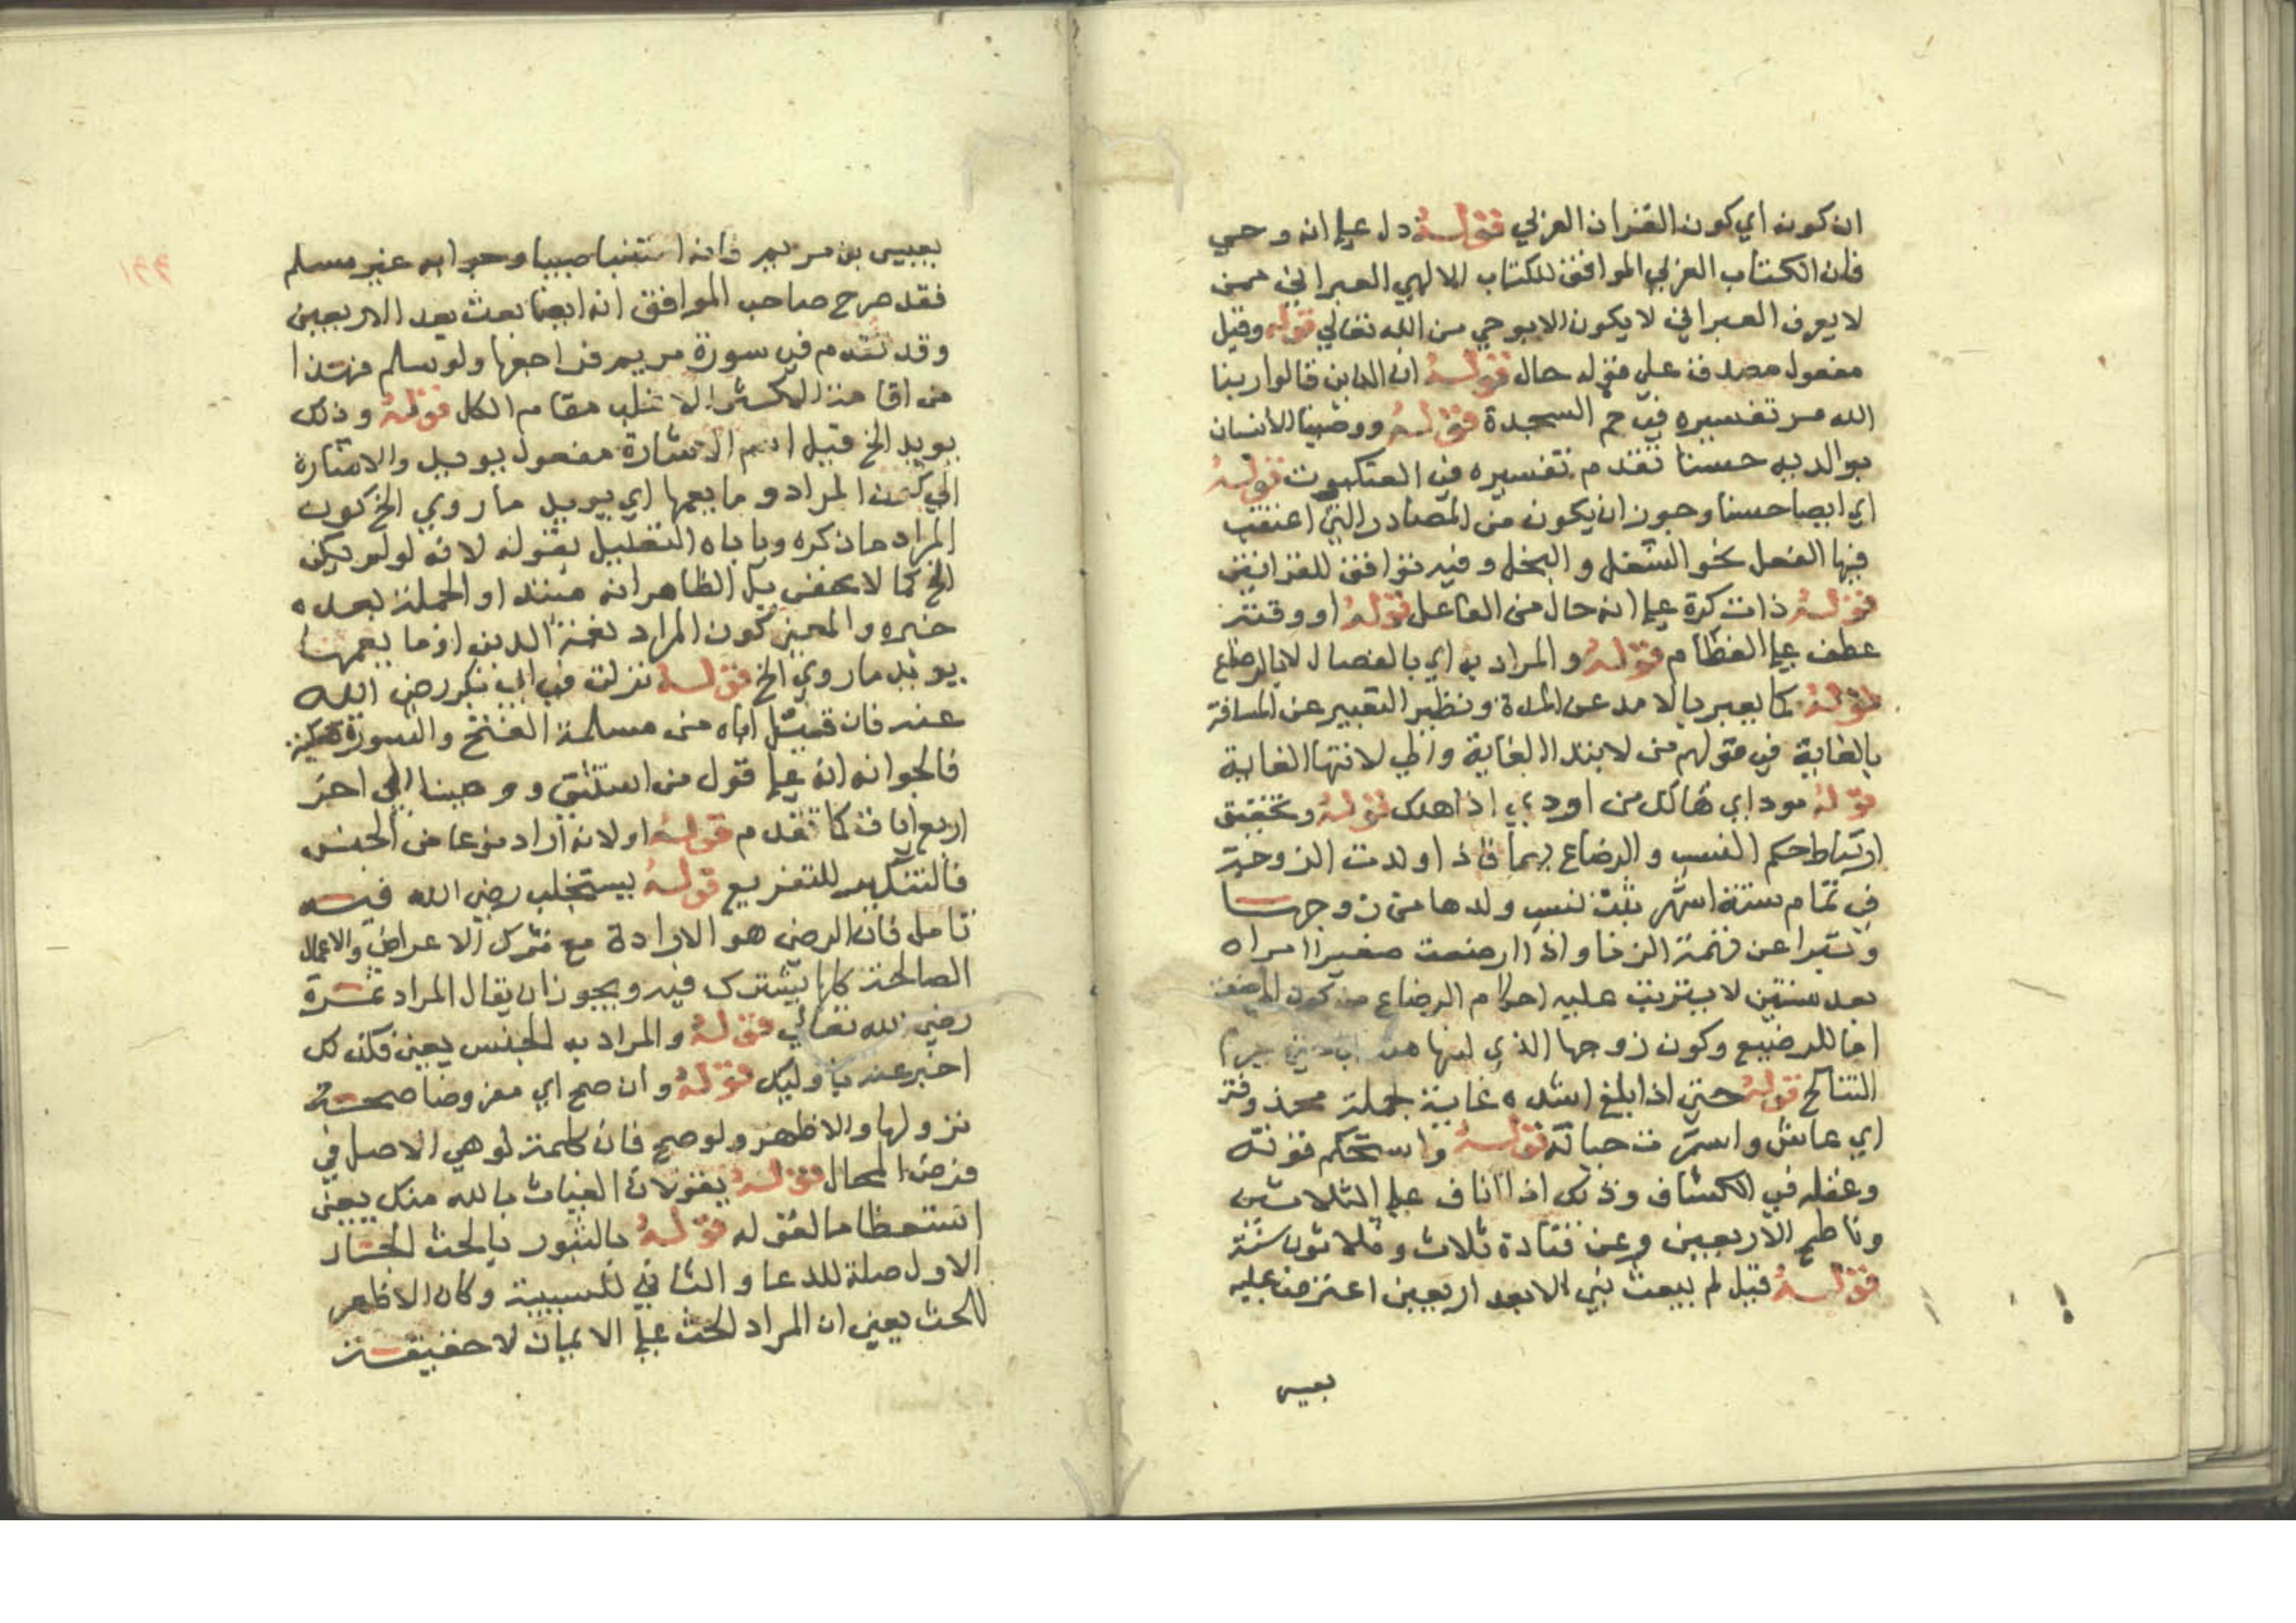 ان كونه اي كون القران العربي قوله دل علي انه وحي
فان الكتاب العربي الموافق للكتاب الالهي العبراني ممن
لا يعرف العبراني لا يكون الا بوحي من الله تعالي قوله وقيل
مفعول مصدق علي قوله حال قوله ان الذين قالوا ربنا
الله مر تفسيره في حم السجدة قوله ووصينا الانسان
بوالديه حسنا تقدم تفسيره في العنكبوت قوله
اي ايصا حسنا وجوز ان يكون من المصادر التي اعتقب
فيها الفعل نحو الشغل والبخل وفيه توافق للقرانين
قوله ذات كرة علي انه حال من الفاعل قوله او وقته
عطف علي الفطام قوله والمراد به اي بالفصال لا بالرضاع
قوله كما يعبر بالامد عن المدة ونظير التعبير عن المسافة
بالغاية في قولهم من لابتدا الغاية والي لانتها الغاية
قوله مود اي هالك من اودي اذا هلك قوله وتحقيق
ارتباط حكم النسب والرضاع بهما فاذا ولدت الزوجة
في تمام ستة اشهر يثبت نسب ولدها من زوجها
وتبرا عن تهمة الزنا واذا ارضعت صغيرا امراه
بعد سنتين لا يترتب عليه احكام الرضاع من كون المرضعة
اما للرضيع وكون زوجها الذي لبنها منه
التناكح قوله حتي اذا بلغ اشده غاية لجملة محذوفة
اي عاش واستمرت حياته قوله واستحكم قوته
وعقله في الكشاف وذلك اذا اناف علي الثلاثين
وناطح الاربعين وعن قتادة ثلاث وثلاثون سنة
قوله قيل لم يبعث نبي الا بعد اربعين اعترض عليه
بعيسي
بعيسي بن مريم فانه استنبا صبيا وجوابه غير مسلم
فقد صرح صاحب المواقف انه ايضا بعث بعد الاربعين
وقد تقدم في سورة مريم فراجعها ولو سلم فهذا
من اقامة الاكثر الاغلب مقام الكل قوله وذلك
يويد الخ قيل اسم الاشارة مفعول يويد والاشارة
الي كون المراد وما يعمها اي يريد ما روي الخ كون
المراد ما ذكره وياباه التعليل بقوله لانه لو لم يكن
الخ كما لا يخفي بل الظاهر انه مبتدا والجملة بعده
خبره والمعني كون المراد نعمة الدين او ما يعمها
يويد ما روي الخ قوله نزلت في ابي بكر رضي الله
عنه فان قيل اباه من مسلمة الفتح والسورة مكية
فالجواب انه علي قول من استثني ووصينا الي اخر
اربع ايات كما تقدم قوله او لانه اراد نوعا من الجنس
فالتنكير للتفريع قوله يستجلب رضي الله فيه
تامل فان الرضي هو الارادة مع ترك الاعراض والاعمال
الصالحة كلها يشترك فيه ويجوز ان يقال المراد ثمرة
رضي الله تعالي قوله والمراد به الجنس يعني فكل
اخبر عنه باوليك قوله وان صح اي مفروضا صحة
نزولها والاظهر ولو صح فان كلمة لو هي الاصل في
فرض المحال قوله يقولان الغياث بالله منك يعني
استعظاما لقوله قوله بالثبور بالحث الجار
الاول صلة للدعا والثاني للسببية وكان الاظهر
للحث يعني ان المراد الحث علي الايمان لا حقيقة